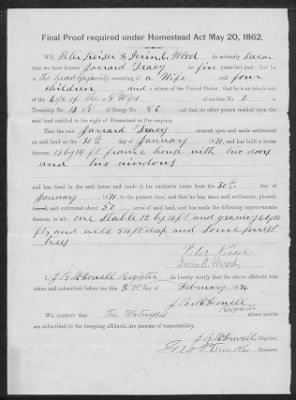 Final Proof required under Homestead Act May 20, 1862.
WE, Peter Keiser & Irvin E. Wood do solemnly swear
that we have known Jarrard Tracy for five years last past; that he is
the head of a family consisting of a Wife and four
children and a citizen of the United States; that he is an inhabitant
of the of section No. 2 in
Township No. of Range No. 8 E and that no other person resided upon the said land
entitled to the right of Homestead or Pre-emption.
That the said Jarrard Tracy entered upon and made settlement
on said land on the 30th day of January 1871, and has built a house
thereon 13 by 18 ft frame house with two doors
and two windows
and has lived in the said house and made it his exclusive home from the 30th day of
January 1871, to the present time, and that he has, since said settlement, plowed,
fenced, and cultivated about 50 acres of said land, and has made the following improvements
thereon, to wit: one Stable 12 by 16 ft and granery 6 by 14
ft, and well 54 ft deep and Some forest
trees
Peter Keiser
Irvin E. Wood
I, J. B. McDowell Register do hereby certify that the above affidavit was
taken and subscribed before me this day of February 1876
J. B. McDowell
Register
WE CERTIFY that the Witnesses whose names are
subscribed to the foregoing affidavit, are persons of respectability.
J. B. McDowell, Register.
Receiver.